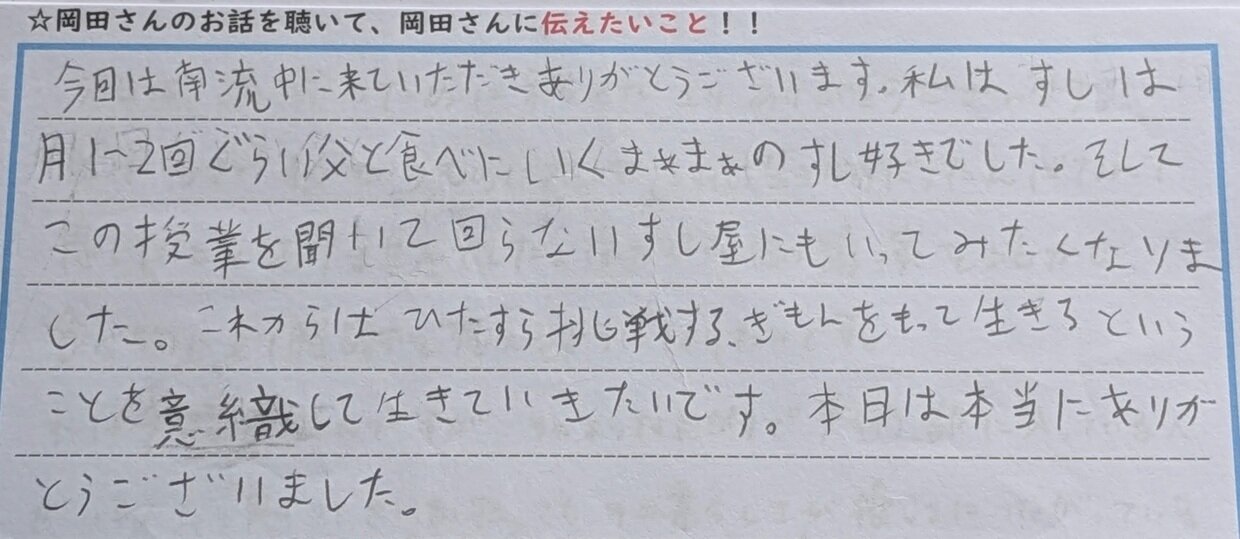 ☆岡田さんのお話を聴いて、岡田さんに伝えたいこと！！
今回は南流中に来ていただきありがとうございます。私はすしは
月1~2回ぐらい父と食べにいくまぁまぁのすし好きでした。そして
この授業を聞いて回らないすし屋にもいってみたくなりま
した。これからはひたすら挑戦する、ぎもんをもって生きろという
ことを意織して生きていきたいです。本日は本当にありが
とうございました。